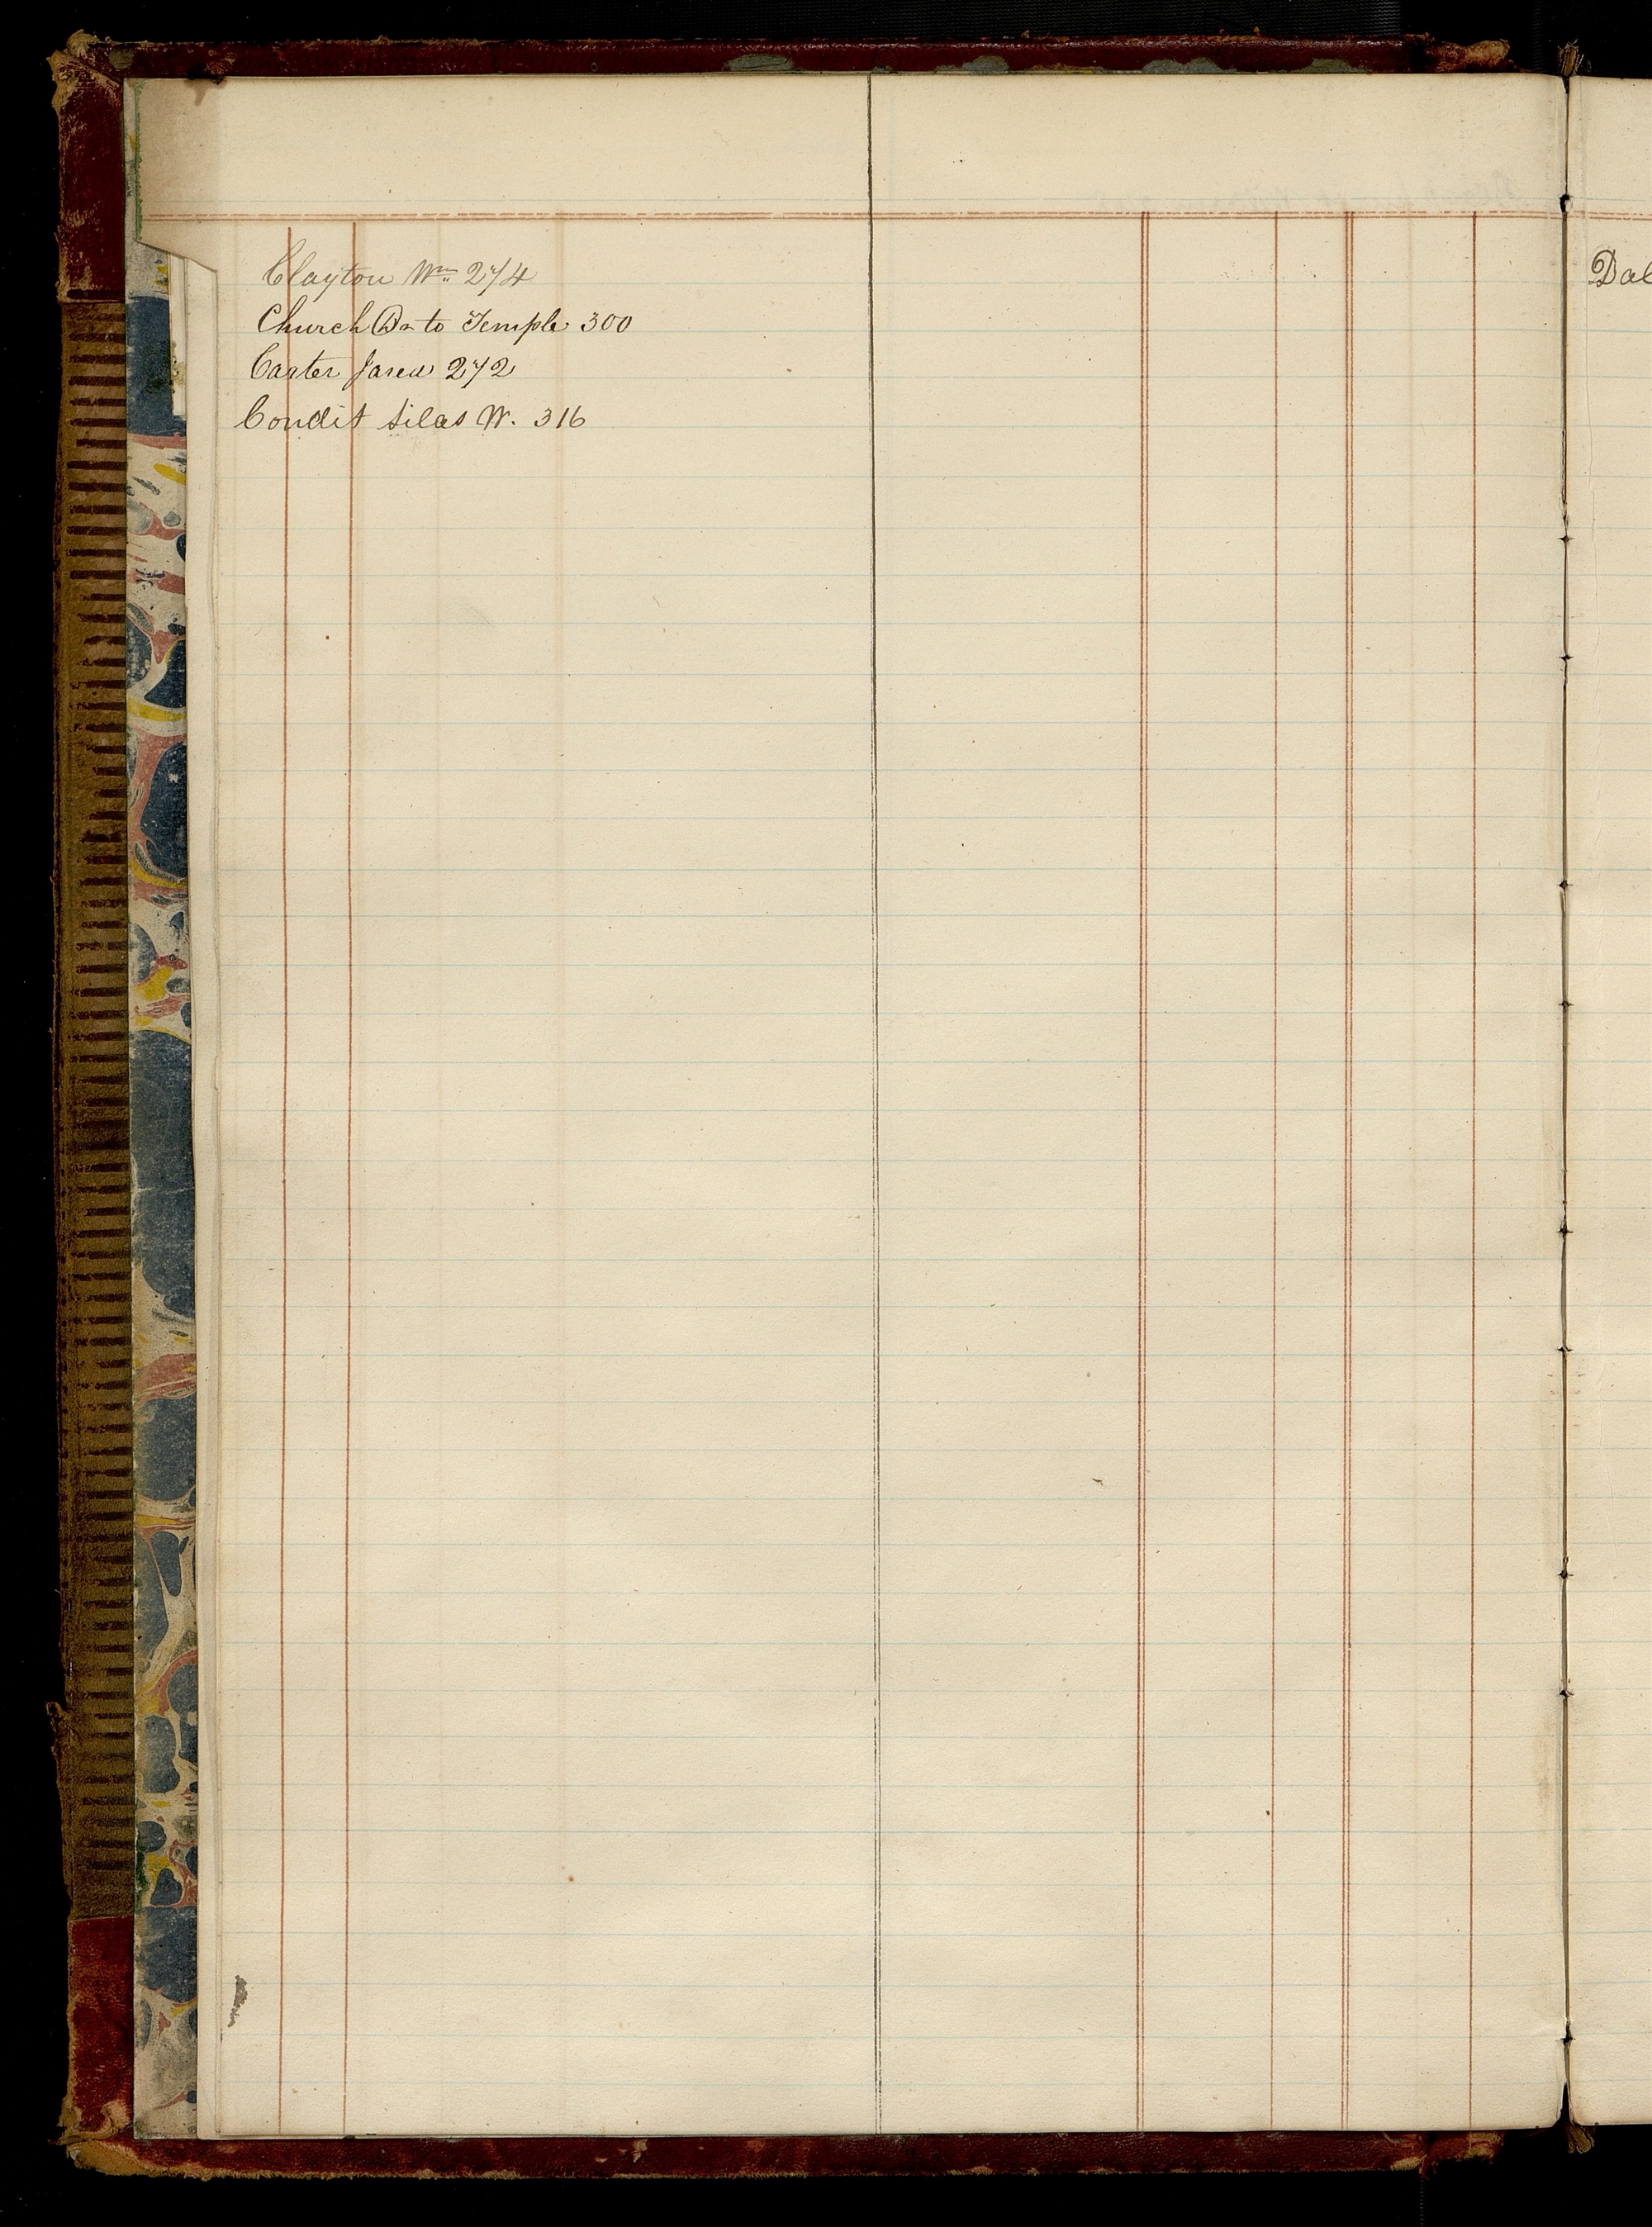 Clayton Wm 274
Church Dr to Temple 300
Carter Jared 272
Condit Silas W. 316
Dal